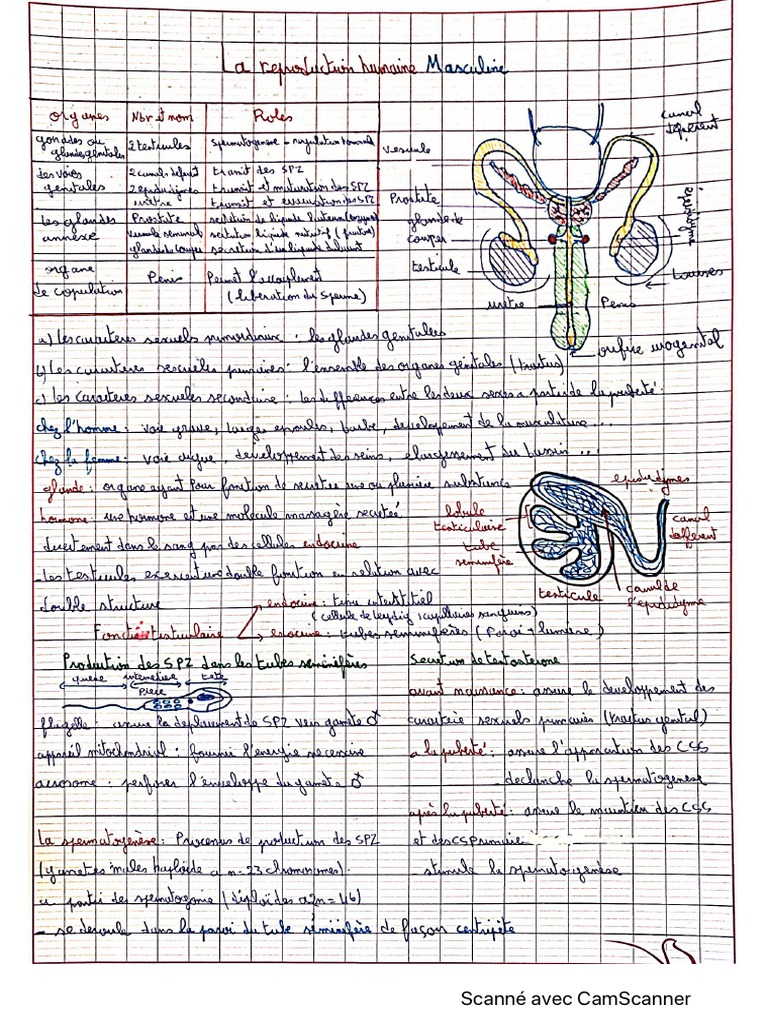 La reproduction humaine Masculine
organes Nbr et nom Roles
gonades ou glandes génitales 2 testicules spermatogenèse - régulation hormonal
des voies génitales 2 canals déférent transit des SPZ
2 épididymes transit et maturation des SPZ
urètre transit et evacuation des SPZ
Les glandes annexe Prostate secrétion de liquide
vesicule seminal secrétion liquide nutritif (fructose)
glande de couper secretion d'un liquide diluant
organe de copulation Penis Permet l'accouplement
(liberation du sperme)
canal déférent
vesicule
Prostate
épididyme
glande de couper
testicule
bourses
urètre Penis
orifice urogenital
a) les caracteres sexuels primordiaux : les glandes genitales
b) les caractères sexuelles primaires : l'ensemble des organes génitales (tractus)
c) les caractères sexuelles secondaire : les differences entre les deux sexes a partir de la puberté.
chez l'homme : voie grave, larges epaules, barbe, developpement de la musculature ...
chez la femme : voie aigue, developpement des seins, elargissement du bassin ...
glande : organe ayant pour fonction de secretée une ou plusieur substances
hormone : une hormone est une molécule massagère secretée
directement dans le sang par des cellules endocrine
- Les testicules exercent une double fonction en relation avec
double structure
epididymes
lobule testiculaire
canal deffèrent
tube seminifère
testicule
canal de l'epididyme
Fonction testiculaire
endocrine : tissu interstitiel
(cellule de leydig + capillaires sanguins)
exocrine : tubes seminifères (Paroi + lumière)
Production des SPZ dans les tubes séminifères
queue intermediaire tête
Pièce
flagelle : assure le deplacement de SPZ vers gamète ♂
appareil mitochondrial : fourni l'energie necessaire
acrosome : perforer l'enveloppe du gamète ♂
La spermatogenèse : Processus de production des SPZ
(gametes males haploïde a n=23 chromosomes).
a partir des spermatogonie (diploïdes a 2n=46)
- se deroule dans la paroi du tube séminifère de façon centripète
Secretion de testosterone
avant naissance : assure le developpement des
caractère sexuels primaires (tractus genital)
a la puberté : assure l'apparution des CSS
- declanche la spermatogenèse
après la puberté : assure le maintien des CSS
et des CS primaire
- stimule la spermatogenèse
Scanné avec CamScanner